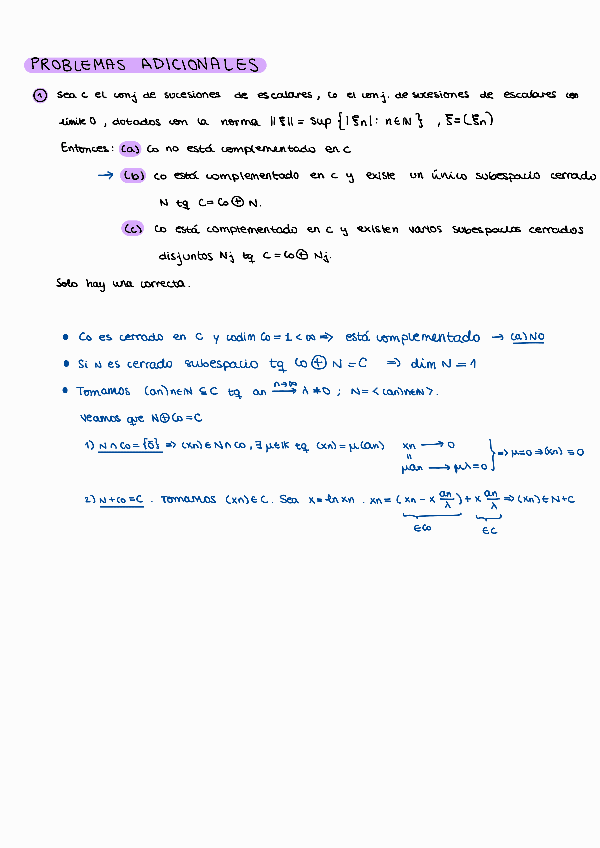 PROBLEMAS ADICIONALES
① Sea c el conj de sucesiones de escalares, c₀ el conj. de sucesiones de escalares con
límite 0, dotados con la norma ||ξ|| = sup {|ξn| : n∈ℕ} , ξ = (ξn)
Entonces: (a) c₀ no está complementado en c
→ (b) c₀ está complementado en c y existe un único subespacio cerrado
N tq C = C₀ ⊕ N.
(c) c₀ está complementado en c y existen varios subespacios cerrados
disjuntos Nj tq C = C₀ ⊕ Nj.
Solo hay una correcta.
• C₀ es cerrado en C y codim C₀ = 1 < ∞ ⇒ está complementado → (a) NO
• Si N es cerrado subespacio tq C₀ ⊕ N = C ⇒ dim N = 1
• Tomamos (an)n∈N ⊆ C tq an —n→∞→ λ ≠ 0 ; N = <(an)n∈N>.
Veamos que N⊕C₀ = C
1) N ∩ C₀ = {0} ⇒ (xn) ∈ N ∩ C₀, ∃ μ∈K tq (xn) = μ(an) xn → 0
= μan → μλ = 0 } ⇒ μ=0 ⇒ (xn) = 0
2) N + C₀ = C . Tomamos (xn) ∈ C. Sea x = lim xn . xn = (xn - x an/λ) + x an/λ ⇒ (xn) ∈ N+C
∈C₀ ∈C